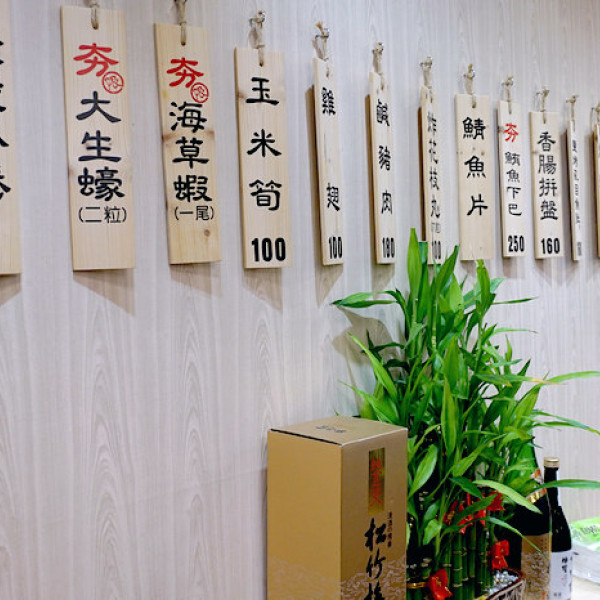 夯
大生蠔
(二粒)
夯
海草蝦
(一尾)
玉米筍
100
雞翅
100
鹹豬肉
180
炸花枝丸
鯖魚片
夯
鮪魚下巴
250
香腸拼盤
160
松竹梅